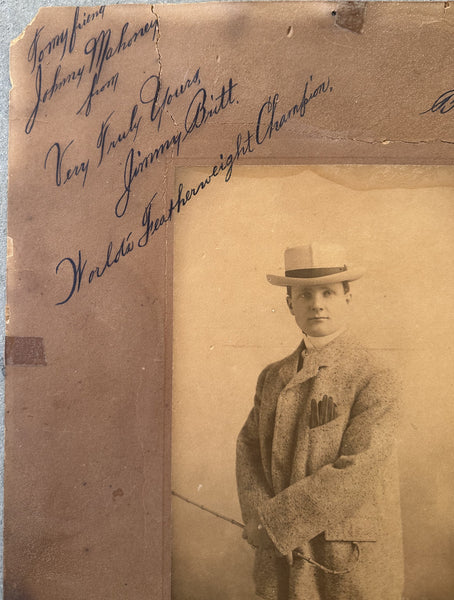 To my friend
Johnny Mahoney
from
Very Truly Yours,
Jimmy Britt.
World's Featherweight Champion,